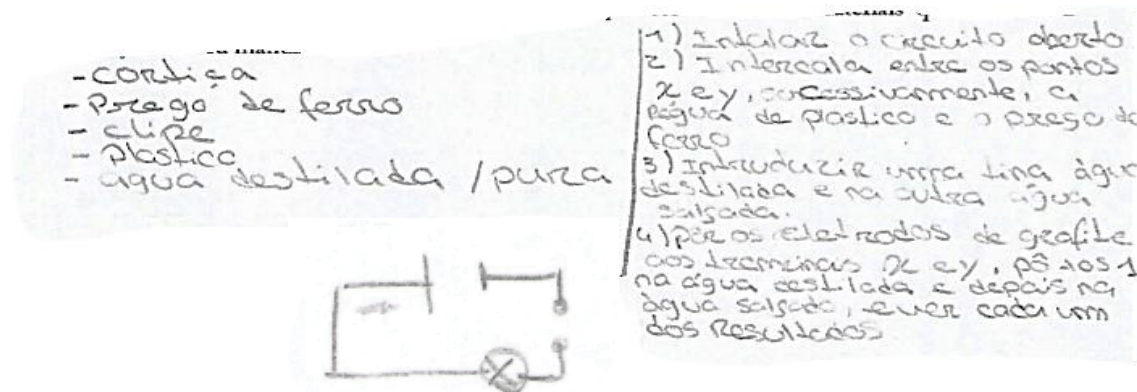 - cortiça
- Prego de ferro
- clipe
- Plastico
- agua destilada / pura
1) Intalar o circuito aberto
2) Intercala entre os pontos
x e y, sucessivamente, a
régua de plastico e o prego de
ferro
3) Introduzir uma tina água
destilada e na outra água
salgada.
4) pôr os eletrodos de grafite
aos terminais x e y, pô-los 1
na água destilada e depois na
água salgada, e ver cada um
dos Resultados